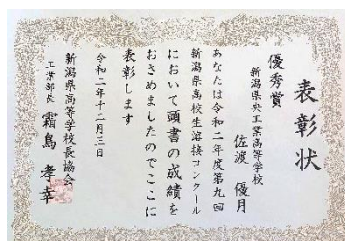 表彰状
優秀賞
新潟県央工業高等学校
佐渡 優月
あなたは令和二年度第九回
新潟県高校生溶接コンクール
において頭書の成績を
おさめましたのでここに
表彰します
令和二年十二月三日
新潟県高等学校長協会
工業部長 霜鳥 孝幸